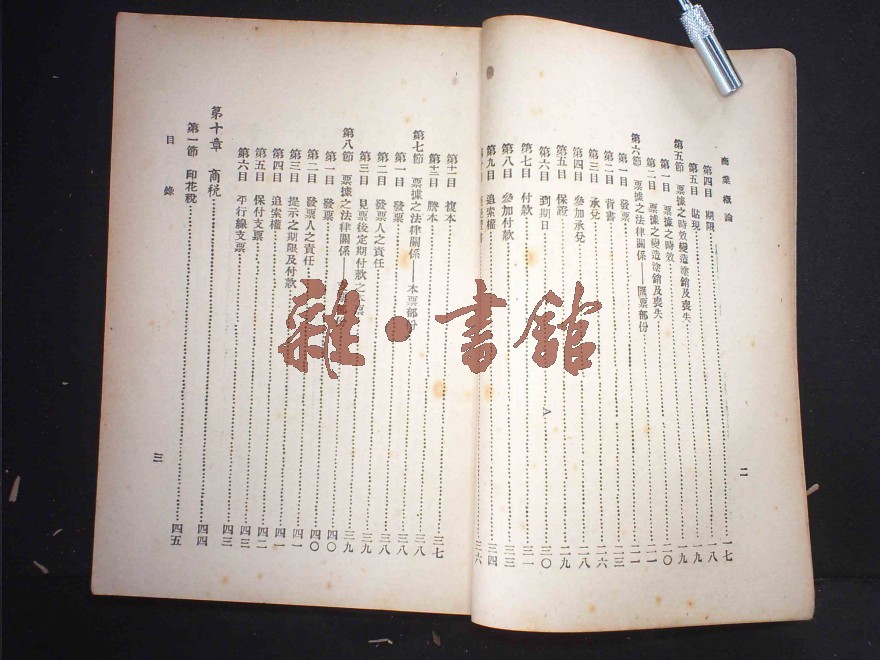 商業概論
二
第四目 期限……一七
第五目 貼現……一八
第五節 票據之時效變造塗銷及喪失……一九
第一目 票據之時效……一九
第二目 票據之變造塗銷及喪失……二〇
第六節 票據之法律關係——匯票部份……二一
第一目 發票……二一
第二目 背書……二三
第三目 承兌……二六
第四目 參加承兌……二八
第五目 保證……二九
第六目 到期日……三〇
第七目 付款……三一
第八目 參加付款……三三
第九目 追索權……三四
三六
第十一目 複本……三七
第十二目 謄本……三八
第七節 票據之法律關係——本票部份……三八
第一目 發票……三八
第二目 發票人之責任……三九
第三目 見票後定期付款之……三九
第八節 票據之法律關係——……四〇
第一目 發票……四〇
第二目 發票人之責任……四一
第三目 提示之期限及付款……四一
第四目 追索權……四二
第五目 保付支票……四三
第六目 平行線支票……四三
第十章 商稅……四四
第一節 印花稅……四五
目錄
三
雜·書館